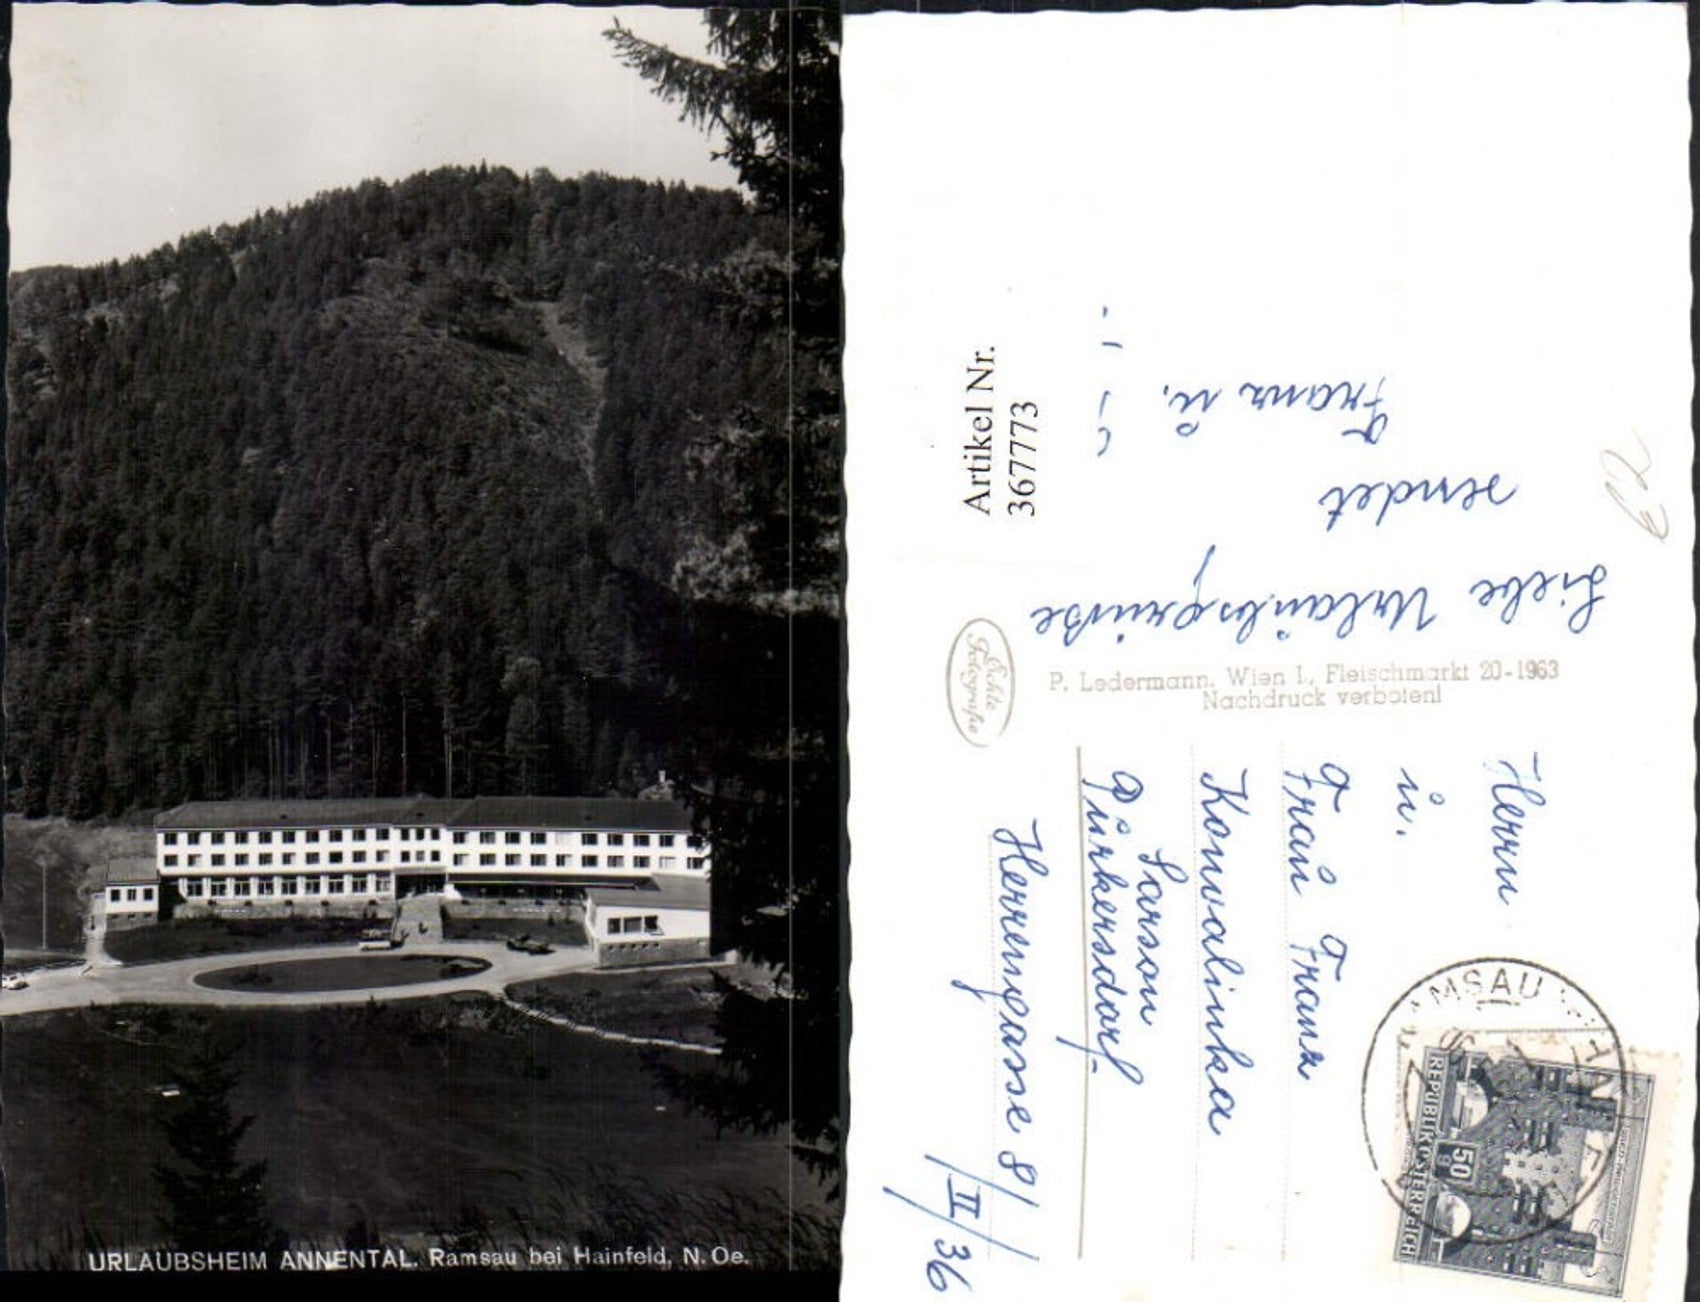 URLAUBSHEIM ANNENTAL, Ramsau bei Hainfeld, N. Oe.
Artikel Nr.
367773
Liebe Urlaubsgrüße
sendet
Franz u.
Echte
Fotografie
P. Ledermann, Wien I., Fleischmarkt 20-1963
Nachdruck verboten!
Herrn
u.
Frau Franz
Konvalinka
Larson
Pürkersdorf
Herrengasse 8/
/II/36
RAMSAU
REPUBLIK ÖSTERREICH
50
g